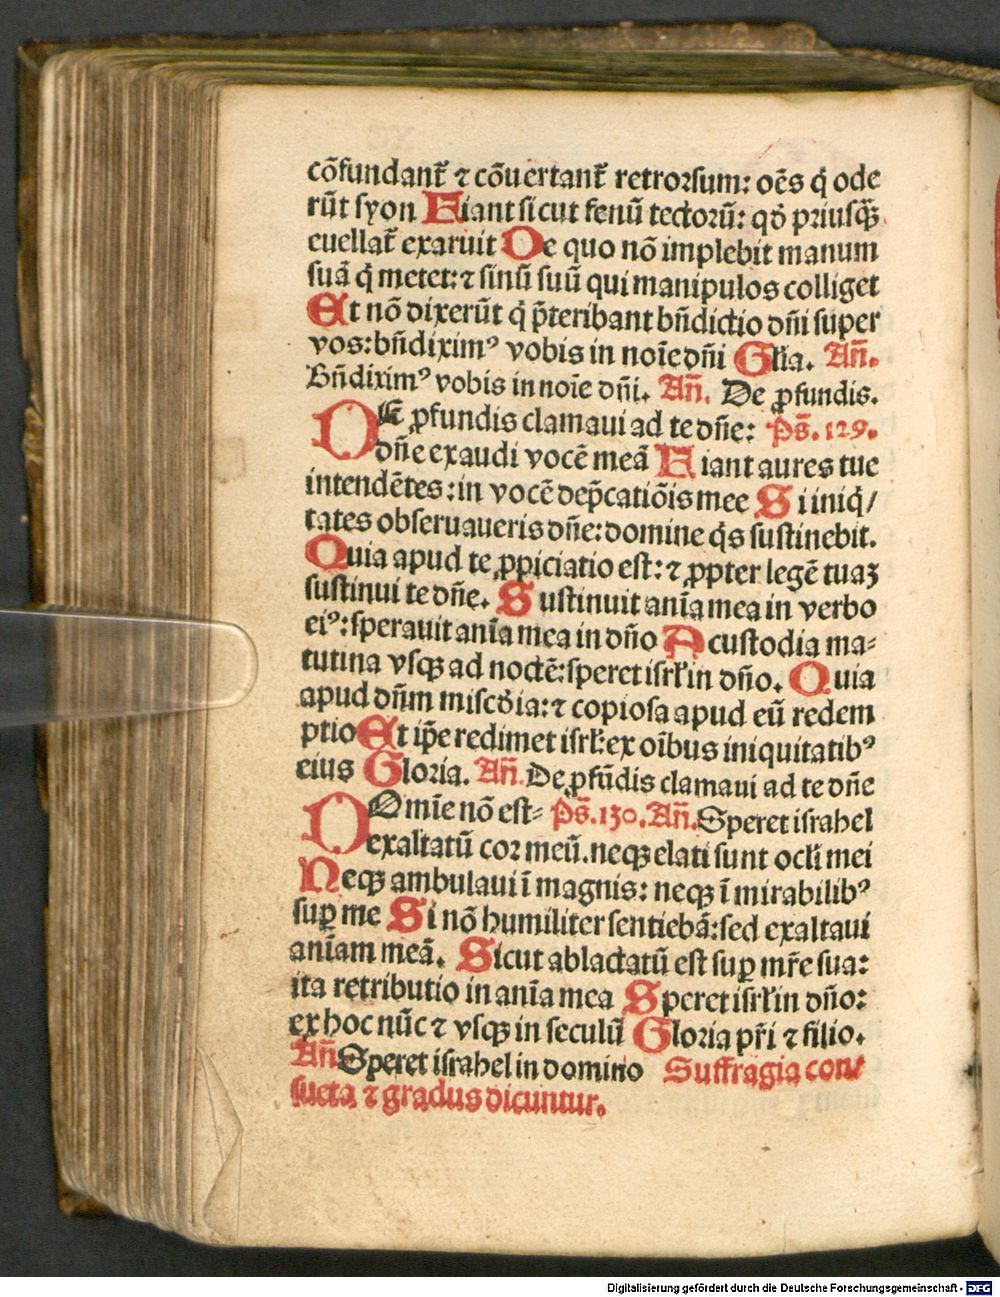 cõfundant᷑ ⁊ cõuertant᷑ retrorsum: oẽs q̇ ode
rũt syon Fiant sicut fenũ tectorũ: qđ priusq̃ꝫ
euellat᷑ exaruit De quo nõ implebit manum
suã q̇ metet: ⁊ sinũ suũ qui manipulos colliget
Et nõ dixerũt q̇ p̃teribant bñdictio dñi super
vos: bñdiximꝰ vobis in noĩe dñi Gľia. Añ.
Bñdiximꝰ vobis in noĩe dñi. Añ. De ꝓfundis.
DE ꝓfundis clamaui ad te dñe: Ps̃. 129.
dñe exaudi vocẽ meã Fiant aures tue
intendẽtes: in vocẽ dep̃catiõis mee Si iniq̇/
tates obseruaueris dñe: domine q̇s sustinebit.
Quia apud te ꝓpiciatio est: ⁊ ꝓpter legẽ tuaꝫ
sustinui te dñe. Sustinuit anĩa mea in verbo
eiꝰ: sperauit anĩa mea in dño A custodia ma-
tutina vsqꝫ ad noctẽ: speret isrľ in dño. Quia
apud dñm miscđia: ⁊ copiosa apud eũ redem
ptio Et ip̃e redimet isrľ: ex oĩbus iniquitatibꝰ
eius Gloria. Añ. De ꝓfũdis clamaui ad te dñe
DOmĩe nõ est- Ps̃. 130. Añ. Speret israhel
exaltatũ cor meũ. neqꝫ elati sunt oclĩ mei
Neqꝫ ambulaui ĩ magnis: neqꝫ ĩ mirabilibꝰ
suꝑ me Si nõ humiliter sentiebã: sed exaltaui
anĩam meã. Sicut ablactatũ est suꝑ mr̃e sua:
ita retributio in anĩa mea Speret isrľ in dño:
ex hoc nũc ⁊ vsqꝫ in seculũ Gloria pr̃i ⁊ filio.
Añ. Speret israhel in domino Suffragia con/
sueta ⁊ gradus dicuntur.
Digitalisierung gefördert durch die Deutsche Forschungsgemeinschaft - DFG